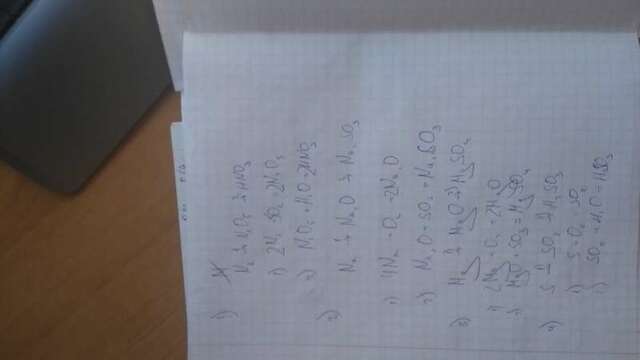 1)
N₂ →¹ N₂O₅ →² HNO₃
1) 2N₂ + 5O₂ = 2N₂O₅
2) N₂O₅ + H₂O = 2HNO₃
2)
Na →¹ Na₂O →² Na₂SO₃
1) 4Na + O₂ = 2Na₂O
2) Na₂O + SO₂ = Na₂SO₃
3) Mg →¹⁾ MgO →²⁾ MgSO₄
1) 2Mg + O₂ = 2MgO
2) MgO + SO₃ = MgSO₄
4) S →¹⁾ SO₂ →²⁾ H₂SO₃
1) S + O₂ = SO₂
2) SO₂ + H₂O = H₂SO₃